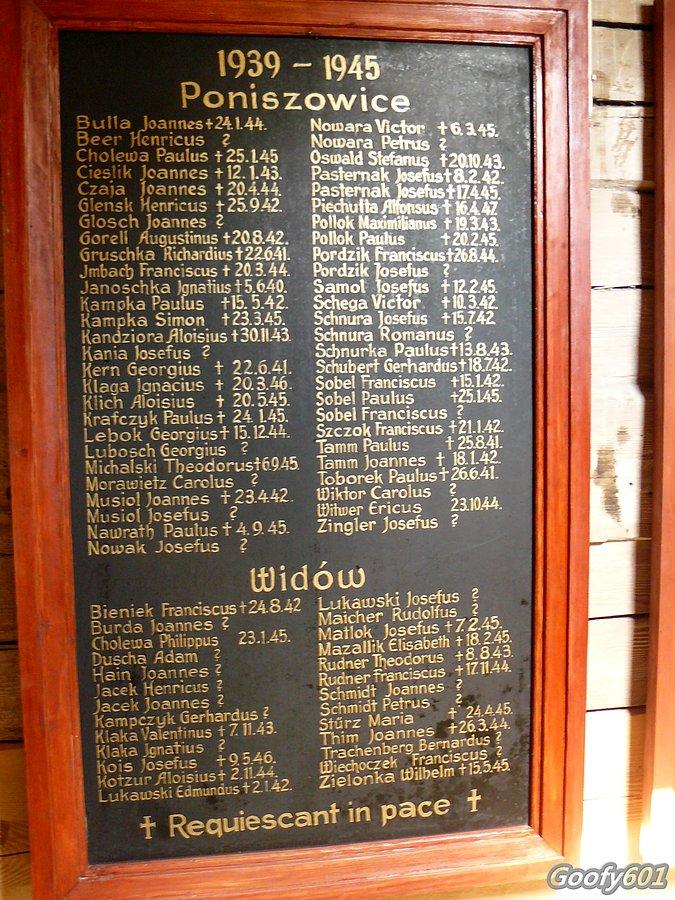 1939 – 1945
Poniszowice
Bulla Joannes + 24.1.44.
Beer Henricus ?
Cholewa Paulus + 25.1.45
Cieslik Joannes + 12.1.43.
Czaja Joannes + 20.4.44.
Glensk Henricus + 25.9.42.
Glosch Joannes ?
Gorell Augustinus + 20.8.42.
Gruschka Richardius + 22.6.41.
Jmbach Franciscus + 20.3.44.
Janoschka Ignatius + 5.6.40.
Kampka Paulus + 15.5.42.
Kampka Simon + 23.3.45.
Kandziora Aloisius + 30.11.43.
Kania Josefus ?
Kern Georgius + 22.6.41.
Klaga Ignacius + 20.3.46.
Klich Aloisius + 20.5.45.
Krafczyk Paulus + 24.1.45.
Lebok Georgius + 15.12.44.
Lubosch Georgius ?
Michalski Theodorus + 6.9.45
Morawietz Carolus ?
Musiol Joannes + 23.4.42.
Musiol Josefus ?
Nawrath Paulus + 4.9.45.
Nowak Josefus ?
Nowara Victor + 6.3.45.
Nowara Petrus ?
Oswald Stefanus + 20.10.43.
Pasternak Josefus + 8.2.42.
Pasternak Josefus + 17.4.45.
Piechulla Alfonsus + 16.4.47
Pollok Maximilianus + 19.3.43.
Pollok Paulus + 20.2.45.
Pordzik Franciscus + 26.8.44.
Pordzik Josefus ?
Samol Josefus + 12.2.45.
Schega Victor + 10.3.42.
Schnura Josefus + 15.7.42
Schnura Romanus ?
Schnurka Paulus + 13.8.43.
Schubert Gerhardus + 18.7.42.
Sobel Franciscus + 15.1.42.
Sobel Paulus + 25.1.45.
Sobel Franciscus ?
Szczok Franciscus + 21.1.42.
Tamm Paulus + 25.8.41.
Tamm Joannes + 18.1.42.
Toborek Paulus + 26.6.41.
Wiktor Carolus ?
Witwer Ericus 23.10.44.
Zingler Josefus ?
Widów
Bieniek Franciscus + 24.8.42
Burda Joannes ?
Cholewa Philippus 23.1.45.
Duscha Adam ?
Hain Joannes ?
Jacek Henricus ?
Jacek Joannes ?
Kampczyk Gerhardus ?
Klaka Valentinus + 7.11.43.
Klaka Ignatius ?
Kois Josefus + 9.5.46.
Kotzur Aloisius + 2.11.44.
Lukawski Edmundus + 2.1.42.
Lukawski Josefus ?
Maicher Rudolfus ?
Matlok Josefus + 7.2.45.
Mazallik Elisabeth + 18.2.45.
Rudner Theodorus + 8.8.43.
Rudner Franciscus + 17.11.44.
Schmidt Joannes ?
Schmidt Petrus ?
Stürz Maria + 24.4.45.
Thim Joannes + 26.3.44.
Trachenberg Bernardus ?
Wiechoczek Franciscus ?
Zielonka Wilhelm + 15.5.45.
† Requiescant in pace †
Goofy601